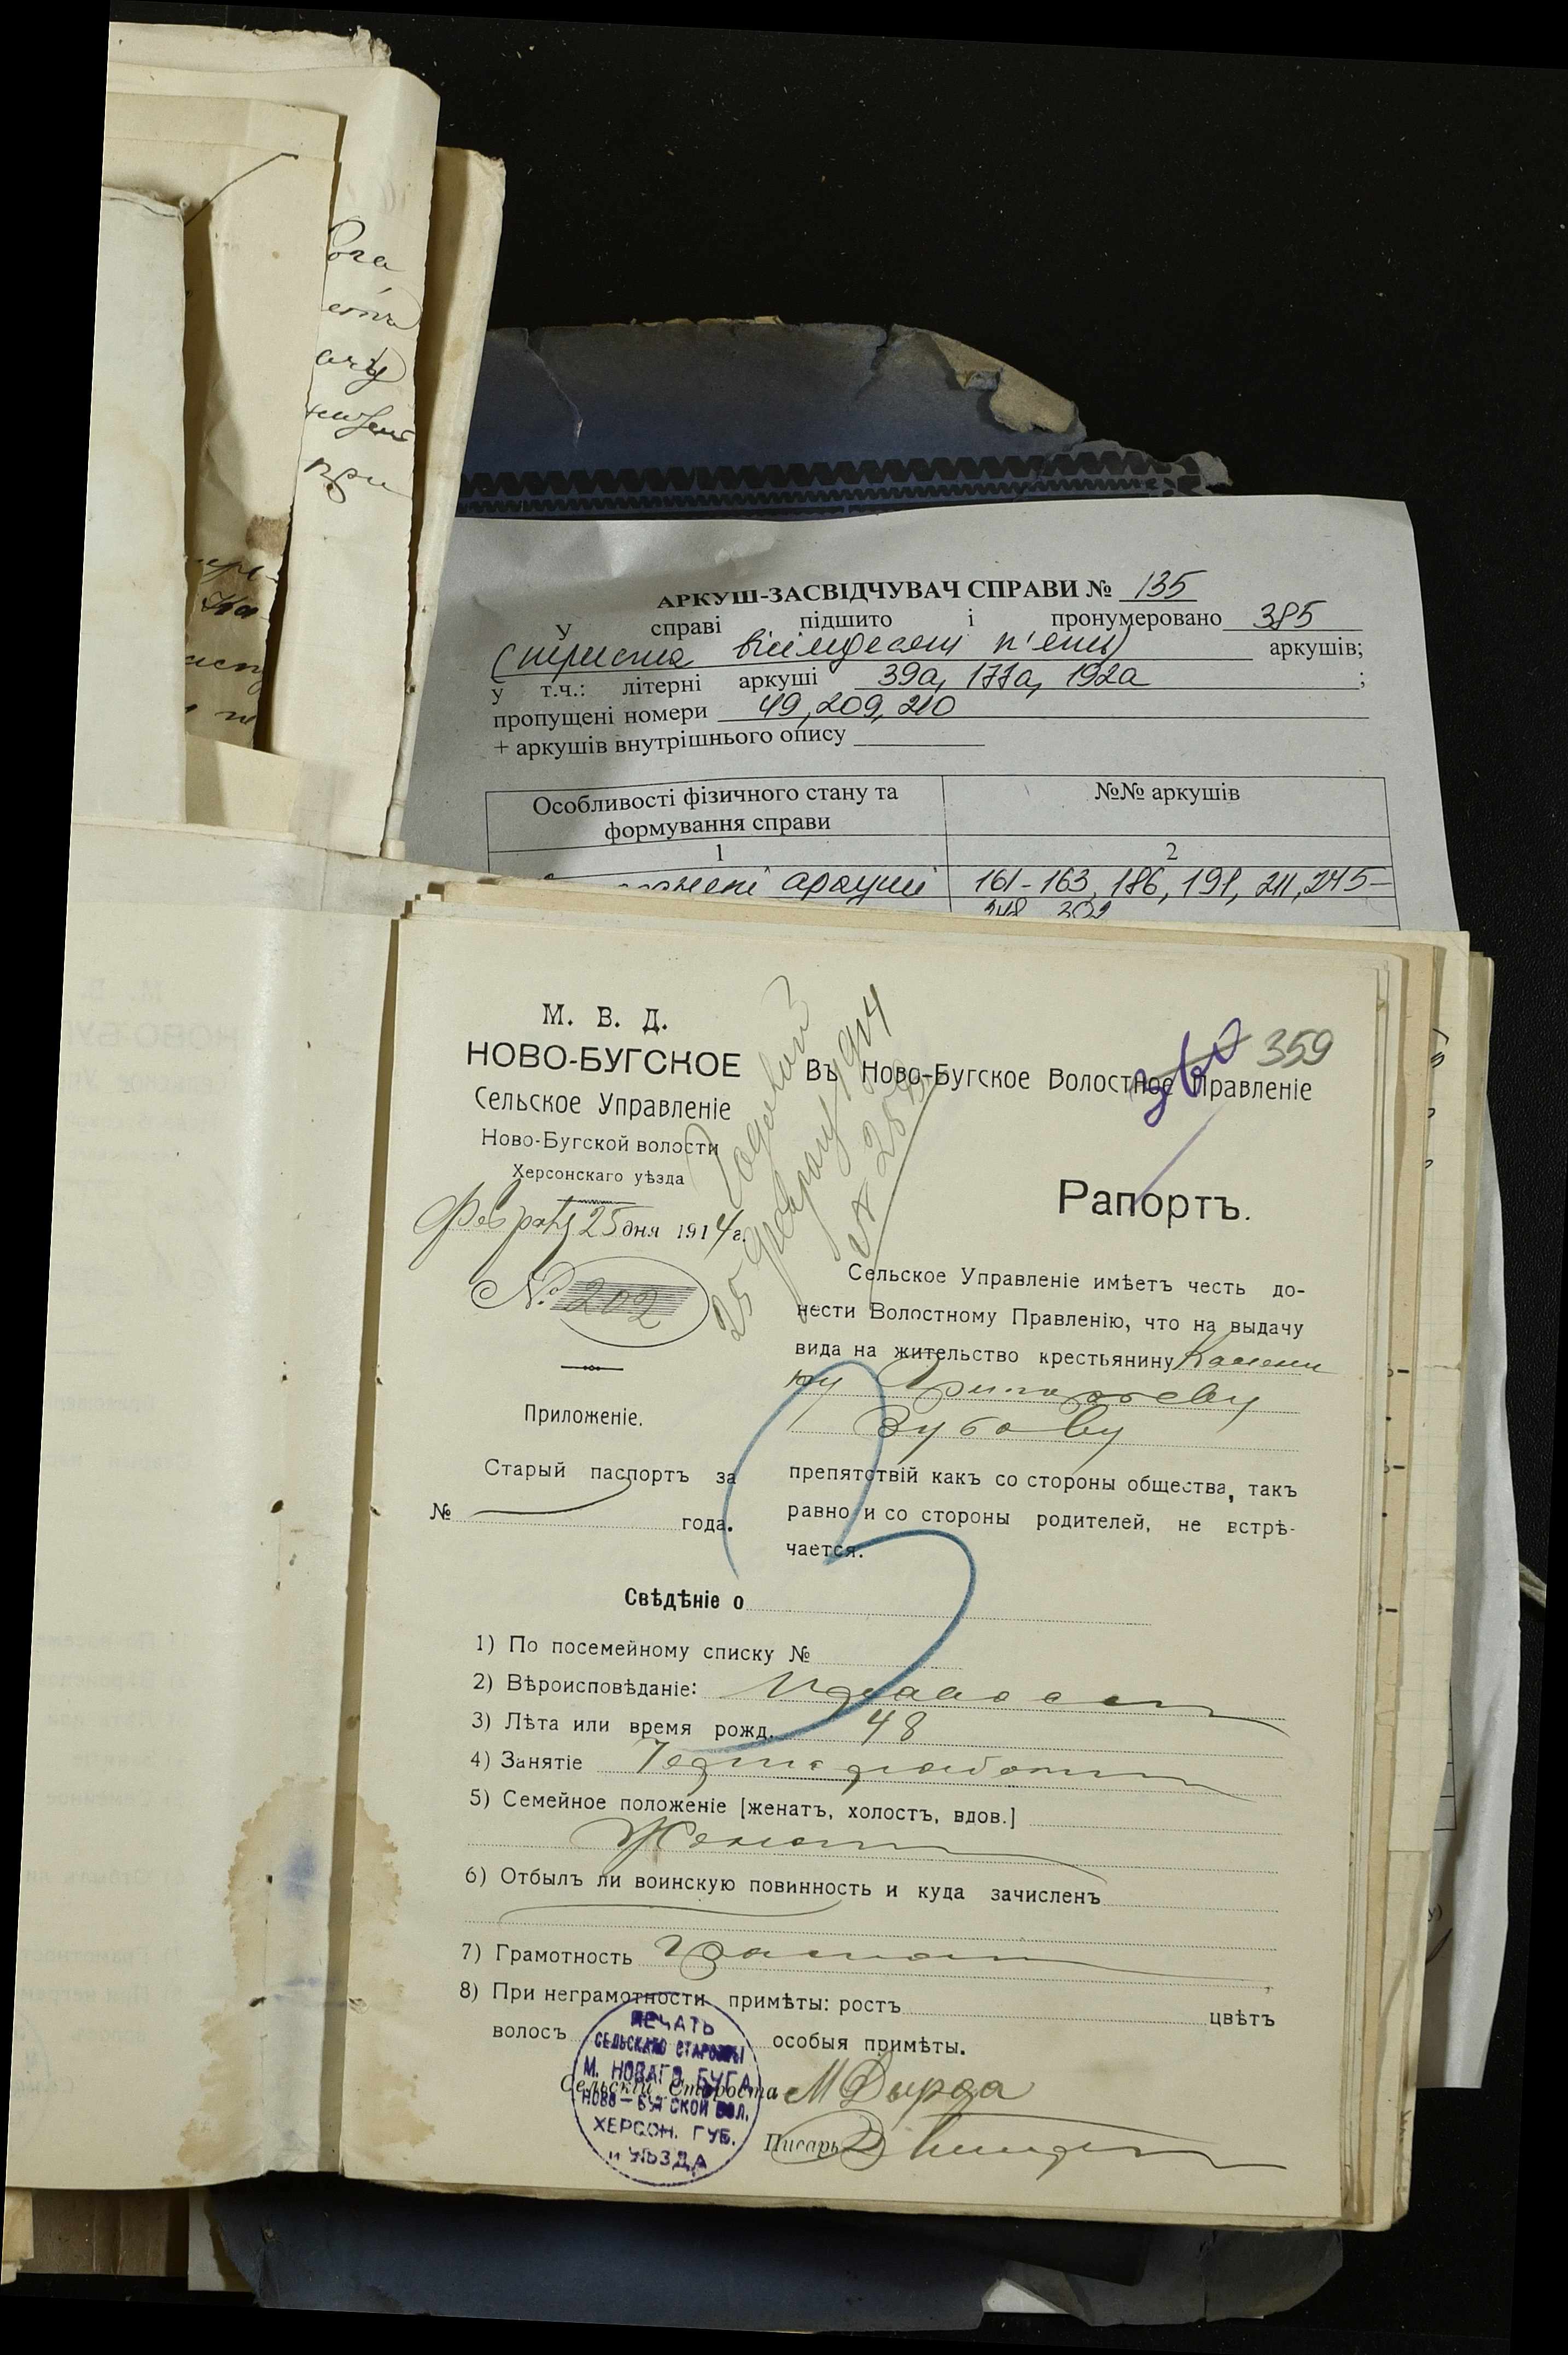 вга
при
АРКУШ-ЗАСВІДЧУВАЧ СПРАВИ № 135
У справі підшито і пронумеровано 385
(триста вісімдесят п'ять) аркушів;
у т.ч.: літерні аркуші 39а, 177а, 192а ;
пропущені номери 49, 209, 210
+ аркушів внутрішнього опису
Особливості фізичного стану та формування справи
№№ аркушів
1
2
аркуші 161-163, 186, 191, 211, 245-
248 302
359
М. В. Д.
НОВО-БУГСКОЕ
Сельское Управленіе
Ново-Бугской волости
Херсонскаго уѣзда
Февраля 25 дня 1914 г.
№ 202
Приложеніе.
Старый паспортъ за
№ года.
Годовой
25 февраля 1914
Въ Ново-Бугское Волостное Правленіе
Рапортъ.
Сельское Управленіе имѣетъ честь до-
нести Волостному Правленію, что на выдачу
вида на жительство крестьянину Калени
ку Григорьеву
Зубову
препятствій какъ со стороны общества, такъ
равно и со стороны родителей, не встрѣ-
чается.
Свѣдѣніе о
1) По посемейному списку №
2) Вѣроисповѣданіе: Православ
3) Лѣта или время рожд. 48
4) Занятіе
5) Семейное положеніе [женатъ, холостъ, вдов.]
Женат
6) Отбылъ ли воинскую повинность и куда зачисленъ
7) Грамотность Грамот
8) При неграмотности примѣты: ростъ цвѣтъ
волосъ особыя примѣты.
Сельскій Староста М Дырда
Писарь
ПЕЧАТЬ
СЕЛЬСКАГО СТАРОСТЫ
М. НОВАГО БУГА
НОВО-БУГСКОЙ ВОЛ.
ХЕРСОН. ГУБ.
и УѢЗДА